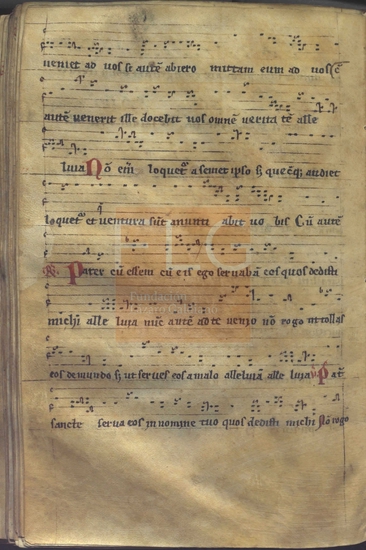 ueniet ad uos si autē abiero mittam eum ad uos Cū
autē uenerit ille docebit uos omnē ueritatē alle
luia Nō em̄ loquet᷑ a semet ipso sꝫ quecūqꝫ audiet
loquet᷑ et uentura sūt anunti abit uo bis Cū autē
℟ Pater cū essem cū eis ego seruabā eos quos dedisti
michi alle luia nūc autē ad te uenio nō rogo ut tollas
eos de mundo sꝫ ut serues eos a malo alleluia alle luia ℣ Pat̄
sancte serua eos in nomine tuo quos dedisti michi Nō rogo
FLG